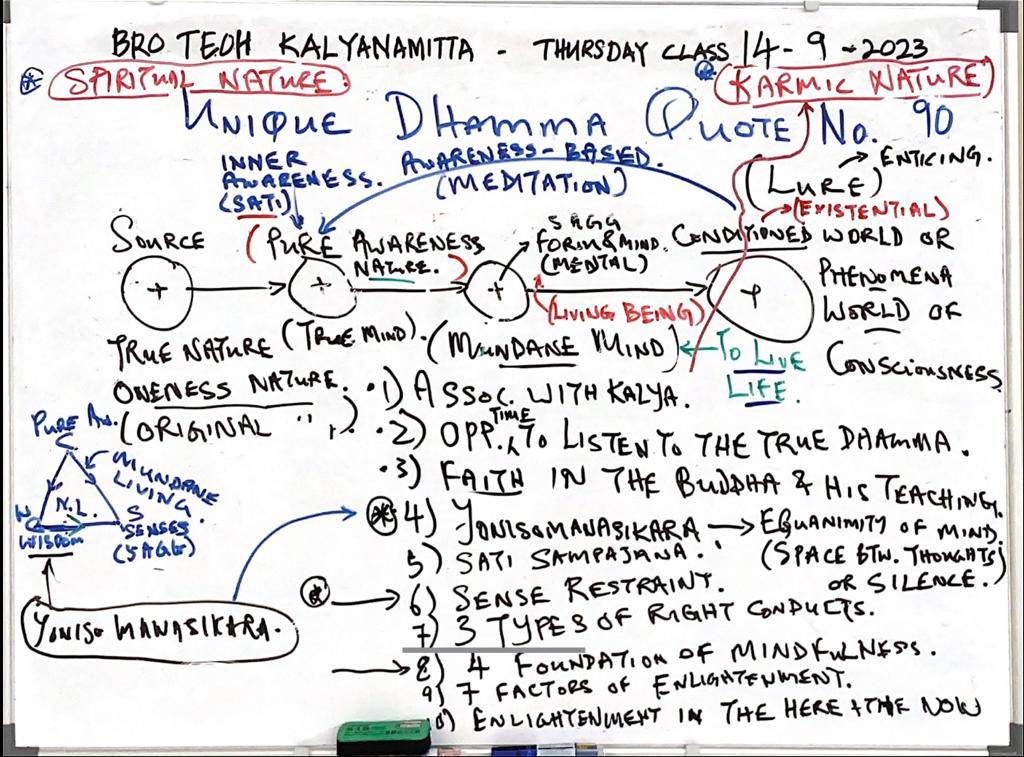 BRO TEOH KALYANAMITTA - THURSDAY CLASS 14-9-2023
SPIRITUAL NATURE.
KARMIC NATURE
UNIQUE DHAMMA QUOTE No. 90
INNER AWARENESS. (SATI)
AWARENESS-BASED. (MEDITATION)
(LURE) → ENTICING.
(EXISTENTIAL)
SOURCE
(PURE AWARENESS NATURE.)
5 AGG FORM & MIND. (MENTAL)
CONDITIONED WORLD OR
PHENOMENA
WORLD OF
CONSCIOUSNESS.
(LIVING BEING)
TRUE NATURE
(TRUE MIND).
(MUNDANE MIND)
TO LIVE
LIFE.
ONENESS NATURE.
(ORIGINAL " ")
.1) ASSOC. WITH KALYA.
.2) OPP. TIME TO LISTEN TO THE TRUE DHAMMA.
.3) FAITH IN THE BUDDHA & HIS TEACHING.
4) YONISOMANASIKARA → EQUANIMITY OF MIND.
(SPACE BTW. THOUGHTS)
OR SILENCE.)
5) SATI SAMPAJANA.
6) SENSE RESTRAINT.
7) 3 TYPES OF RIGHT CONDUCTS.
8) 4 FOUNDATION OF MINDFULNESS.
9) 7 FACTORS OF ENLIGHTENMENT.
10) ENLIGHTENMENT IN THE HERE & THE NOW
PURE AW.
MUNDANE
LIVING.
N.L.
S
SENSES
(5AGG)
WISDOM
YONISO MANASIKARA.